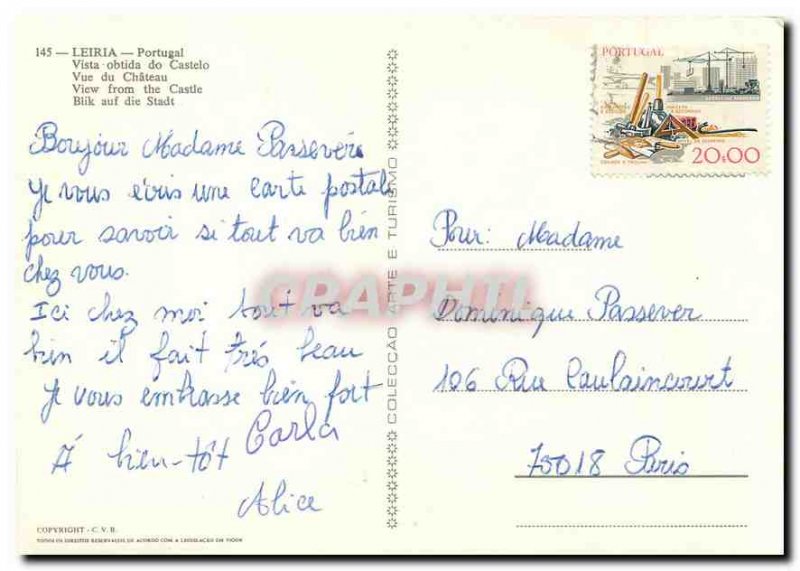 145 — LEIRIA — Portugal
Vista obtida do Castelo
Vue du Château
View from the Castle
Blik auf die Stadt
Bonjour Madame Passever
je vous écris une carte postale
pour savoir si tout va bien
chez vous.
Ici chez moi tout va
bien il fait très beau
je vous embrasse bien fort
À bien-tôt Carla
Alice
COPYRIGHT - C. V. B.
TODOS OS DIREITOS RESERVADOS DE ACORDO COM A LEGISLAÇÃO EM VIGOR
COLECÇÃO ARTE E TURISMO
CPAPHIL
PORTUGAL
20$00
Pour: Madame
Dominique Passever
106 Rue Caulaincourt
75018 Paris